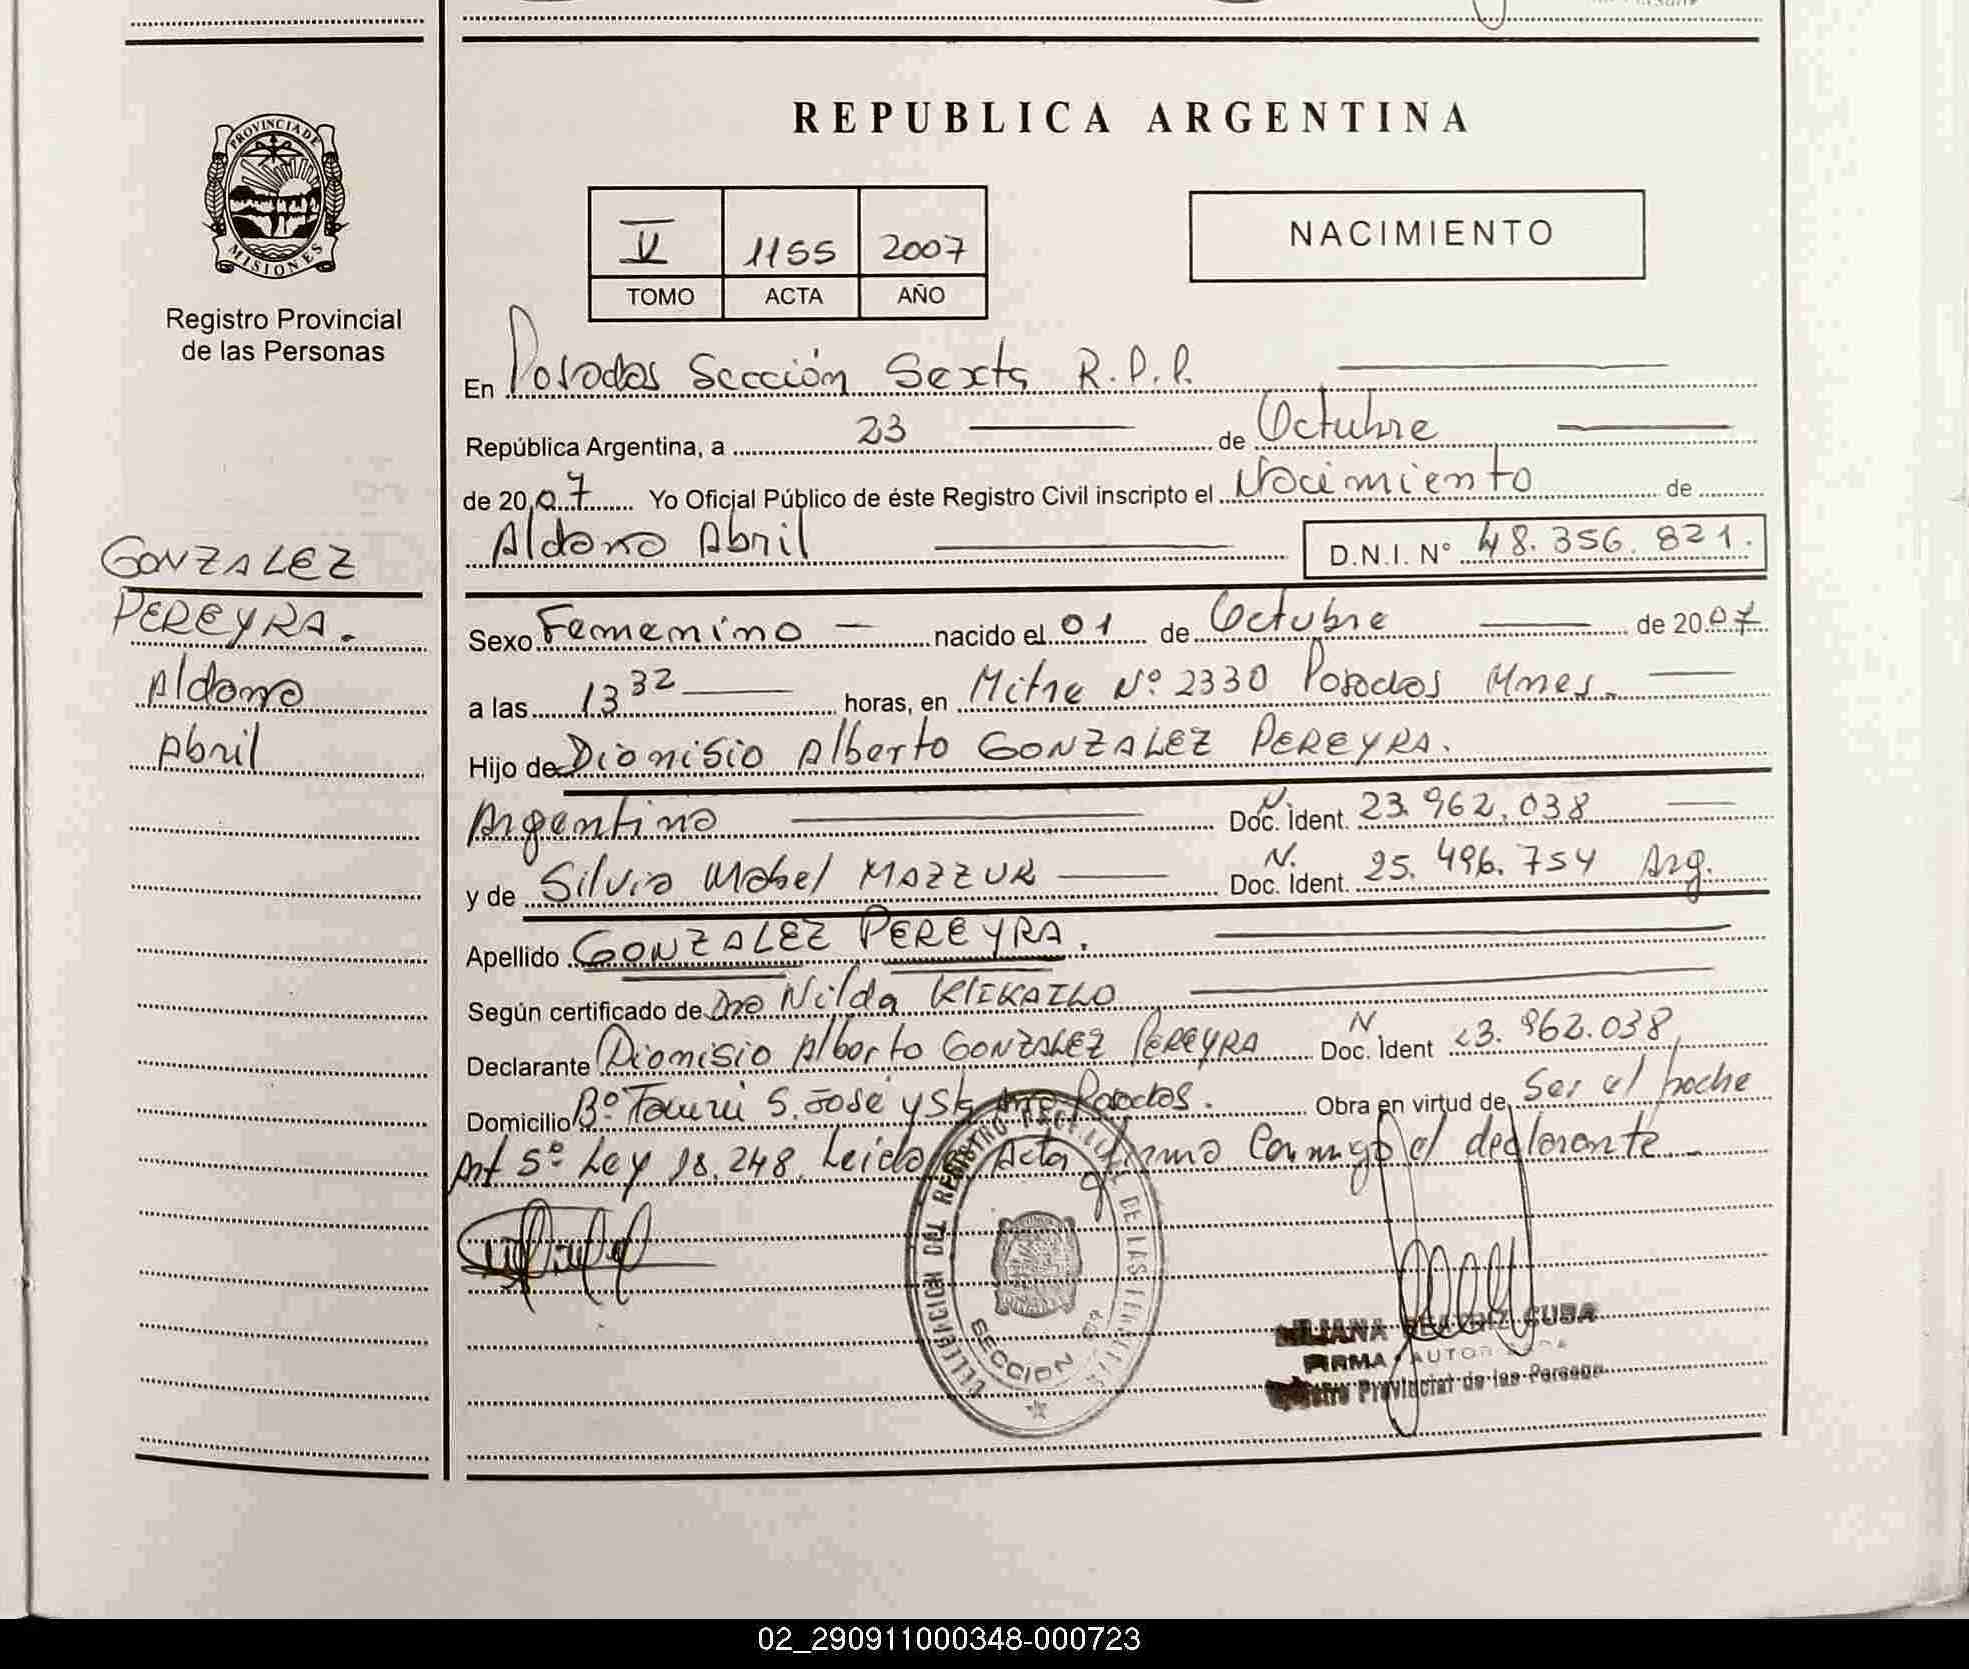 PROVINCIA DE
MISIONES
Registro Provincial
de las Personas
GONZALEZ
PEREYRA.
Aldana
Abril
REPUBLICA ARGENTINA
V 1155 2007
TOMO ACTA AÑO
NACIMIENTO
En Posadas Sección Sexta R.P.P.
República Argentina, a 23 de Octubre
de 2007 Yo Oficial Público de éste Registro Civil inscripto el Nacimiento de
Aldana Abril D.N.I. N° 48.356.821.
Sexo Femenino nacido el 01 de Octubre de 2007
a las 13 32 horas, en Mitre N° 2330 Posadas Mnes.
Hijo de Dionisio Alberto GONZALEZ PEREYRA.
Argentino N. Doc. Ident. 23.962.038
y de Silvia Mabel MAZZUR N. Doc. Ident. 25.496.754 Arg.
Apellido GONZALEZ PEREYRA.
Según certificado de Dra Nilda
Declarante Dionisio Alberto GONZALEZ PEREYRA N Doc. Ident 23.962.038
Domicilio B° S. José y Sta Posadas. Obra en virtud de Ser el
Art 5° Ley 18.248. Leida Acta firma Conmigo el declarante
DELEGACION DEL REGISTRO PROVINCIAL DE LAS PERSONAS
SECCION
LILIANA BEATRIZ CUBA
FIRMA AUTORIZADA
Registro Provincial de las Personas
02_290911000348-000723